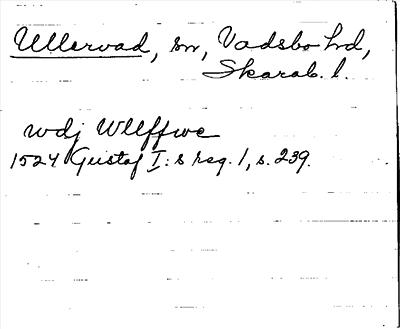 Ullervad, sn, Vadsbo hd,
Skarab. l.
wdj Wllffwe
1524 Gustaf I:s reg. 1, s. 239.